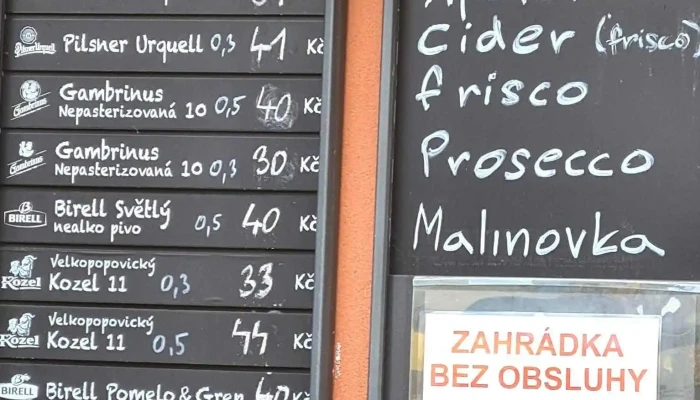 Pilsner Urquell 0,3 41 Kč
Gambrinus
Nepasterizovaná 10 0,5 40 Kč
Gambrinus
Nepasterizovaná 10 0,3 30 Kč
BIRELL
Birell Světlý
nealko pivo 0,5 40 Kč
Velkopopovický
Kozel
Kozel 11 0,3 33 Kč
Velkopopovický
Kozel
Kozel 11 0,5 44 Kč
BIRELL
Birell Pomelo & Gren 40 Kč
Cider (frisco)
frisco
Prosecco
Malinovka
ZAHRÁDKA
BEZ OBSLUHY